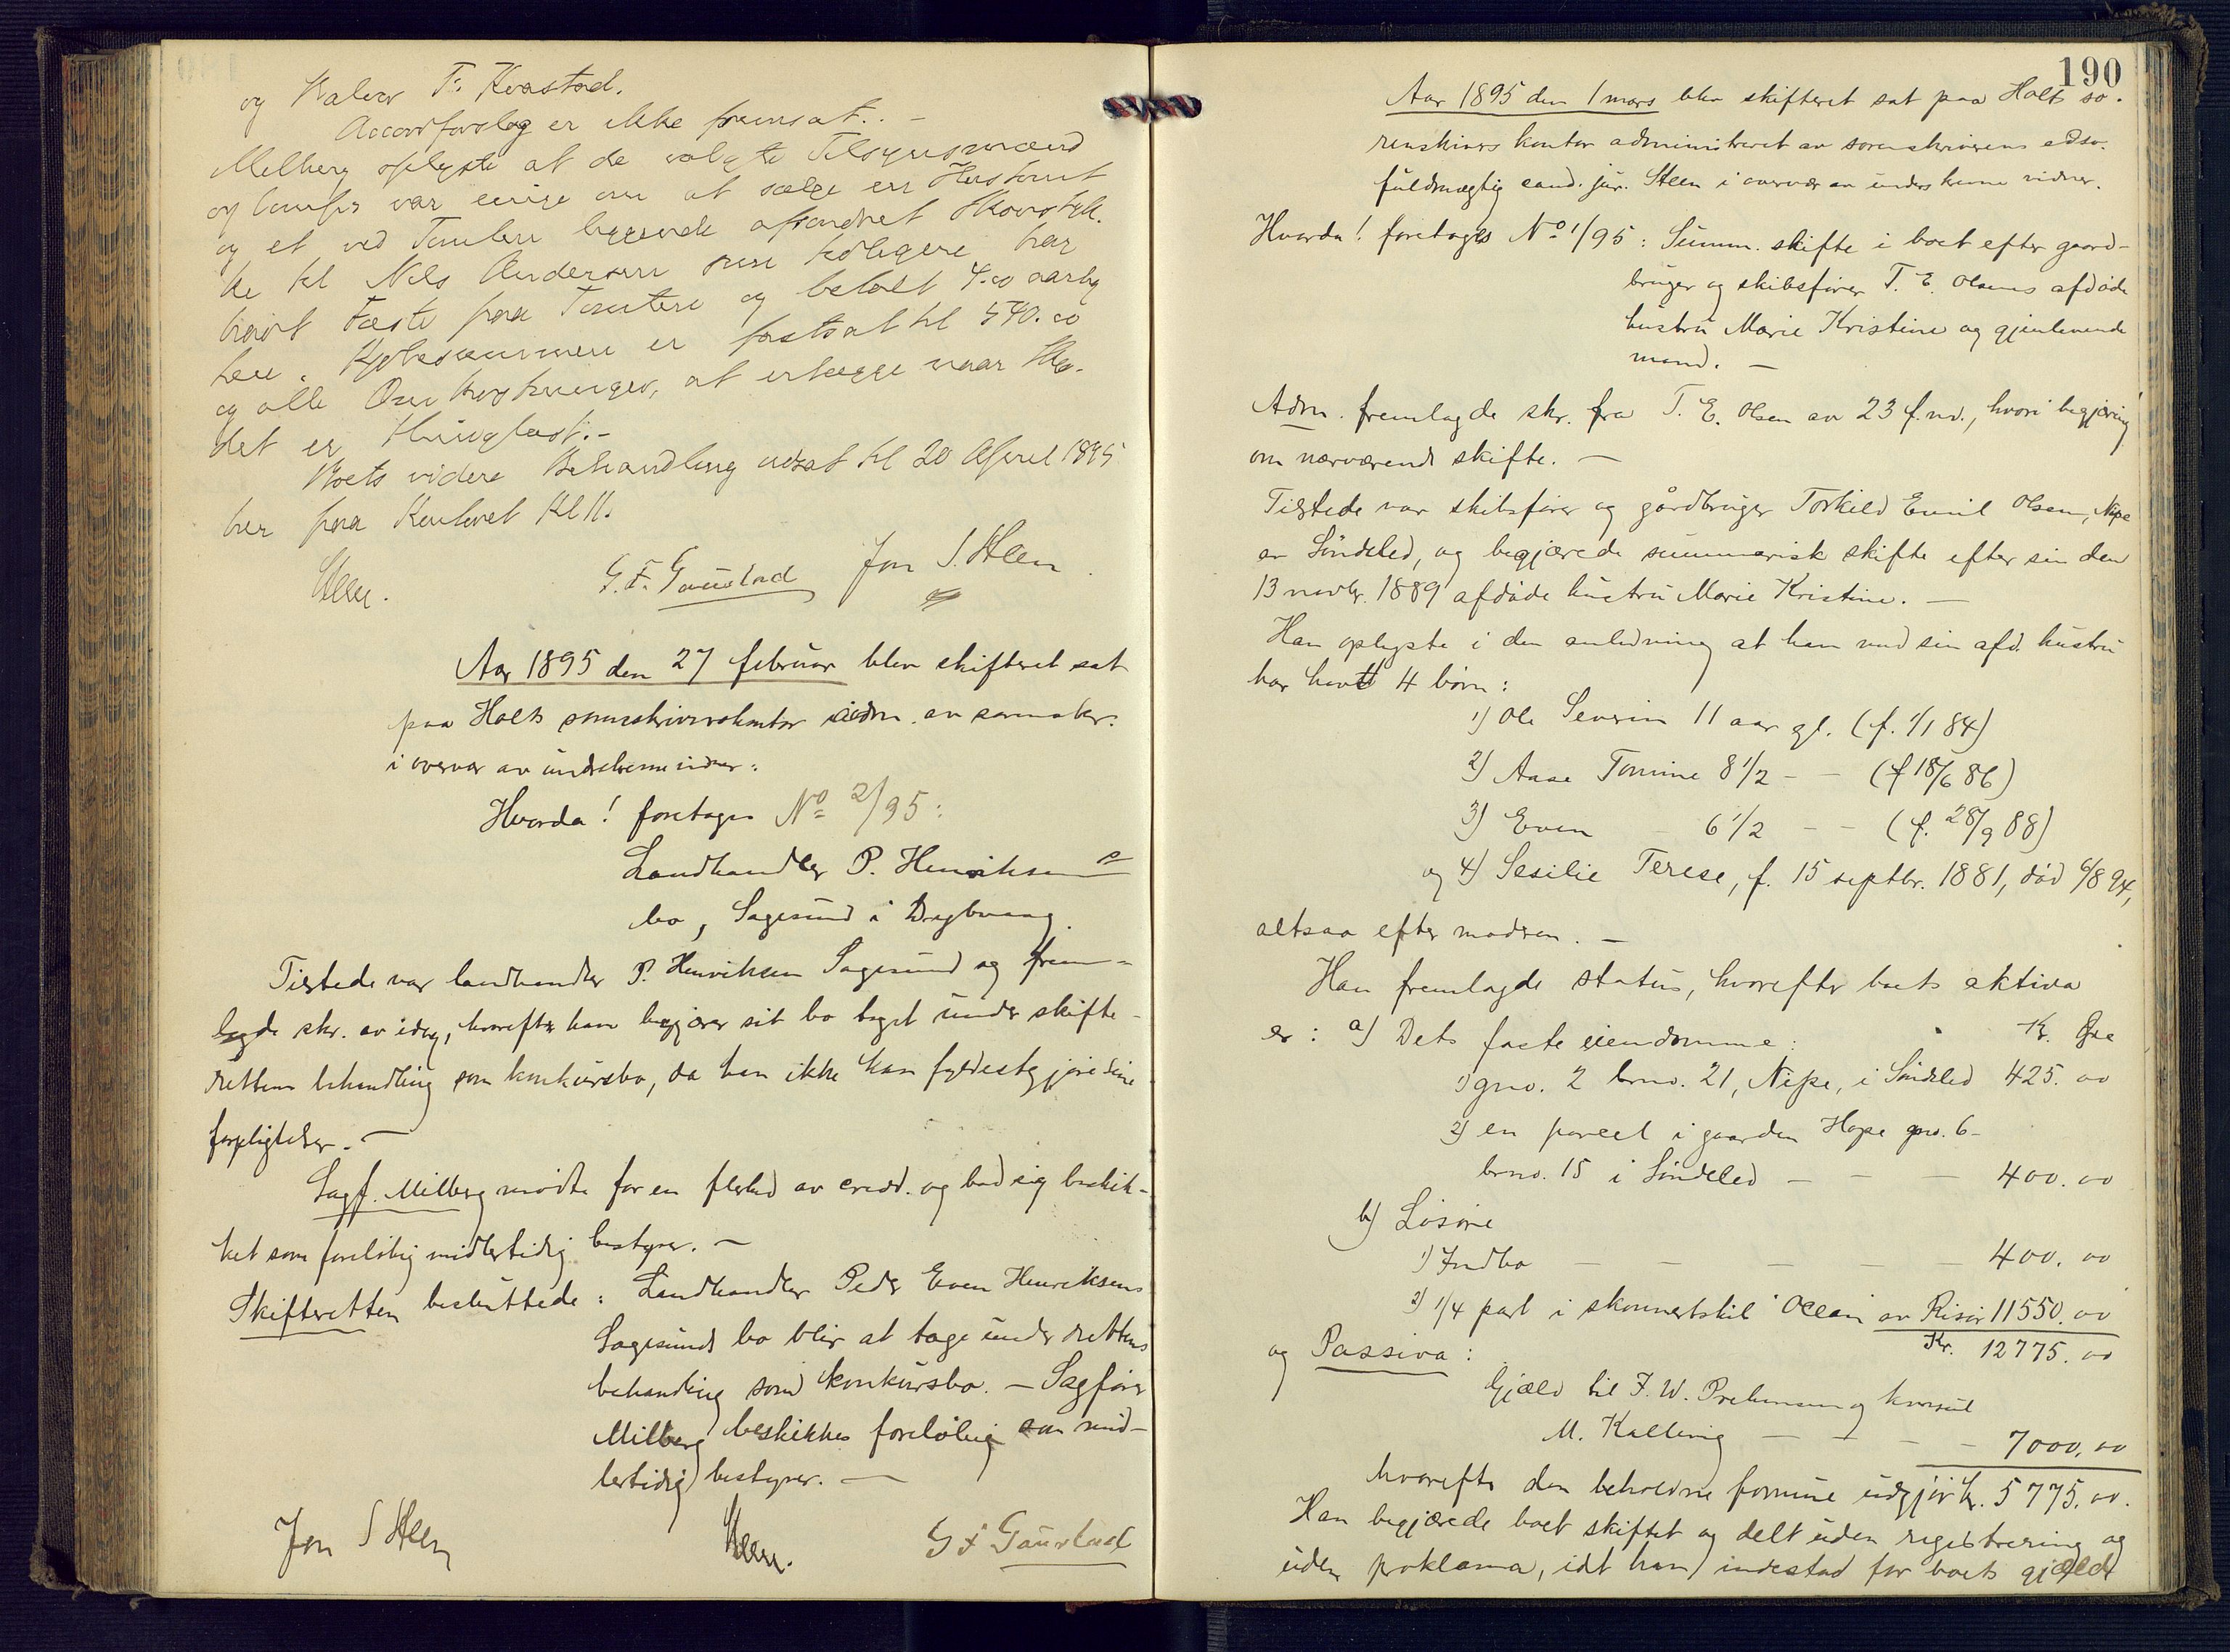 og Halvor T: Kvastad.
Accordforslag er ikke fremsat. . -
Melberg oplyste at de valgte Tilsynsmænd
og comfis var enige om at sælge en Hustomt
og et ved Tomten liggende afsondret Skovstyk-
ke til Nils Andersen som tidligere har
havt Fæste paa Tomten og betalt 4.00 aarlig
herr. Kjøbesummen er fastsat til 540.00
og alle Omkostninger, at erlægge naar Skjø-
det er thinglæst. -
Boets videre Behandling udsat til 20 April 1895
her paa Kontoret Kl 11.
Steen. G. F. Gaustad Jon S. Steen
Aar 1895 den 27 februar blev skifteret sat
paa Holts sorenskriverkontor adm. av sorenskr.
i overvær av underskrevne vidner:
Hvorda! foretages No 2/95:
Landhandler P. Henriksens
bo, Sagesund i Dybvaag.
Tilstede var landhandler P. Henriksen Sagesund og frem-
lagde skr. av idag, hvorefter han begjærer sit bo taget under skifte-
rettens behandling som konkursbo, da han ikke kan fyldestgjøre sine
forpligtelser. -
Sagf. Milberg mødte for en flerhed av credd. og bad sig beskik-
ket som foreløbig midlertidig bestyrer. -
Skifteretten besluttede: Landhandler Peder Even Henriksens
Sagesunds bo blir at tage under rettens
behandling som konkursbo. - Sagfører
Milberg beskikkes foreløbig som mid-
lertidig bestyrer. -
Jon S Steen Steen. G F Gaustad
190
Aar 1895 den 1 mars blev skifteret sat paa Holt so-
renskrivers kontor administreret av sorenskriverens edsv.
fuldmægtig cand. jur. Steen i overvær av underskrevne vidner.
Hvorda! foretages No 1/95: Summ. skifte i boet efter gaard-
bruger og skibsfører T. E. Olsens afdøde
hustru Marie Kristine og gjenlevende
mand. -
Adm. fremlagde skr. fra T. E. Olsen av 23 f. md., hvori begjæring
om nærværende skifte. -
Tilstede var skibsfører og gårdbruger Torkild Emil Olsen, Nipe
av Søndeled, og begjærede summarisk skifte efter sin den
13 novbr. 1889 afdøde hustru Marie Kristine. -
Han oplyste i den anledning at han med sin afd. hustru
har havt 4 børn:
1) Ole Severin 11 aar gl. (f. 1/1 84)
2) Aase Tomine 8 1/2 - - (f 18/6 86)
3) Even - 6 1/2 - - (f. 28/9 88)
og 4) Sesilie Terese, f. 15 septbr. 1881, død 6/8 94,
altsaa efter modren. -
Han fremlagde status, hvorefter boets aktiva
er: a) Dets faste eiendomme: Kr. Øre
1) gno. 2 brno. 21, Nipe, i Søndeled 425. 00
2) en parcel i gaarden Hope gno. 6-
brno. 15 i Søndeled - - - 400. 00
b) Løsøre
1) Indbo - - - - - 400. 00
2) 1/4 part i skonnertskib "Ocean" av Risør 11550. 00
Kr. 12775. 00
og Passiva:
Gjæld til F. W. Prebensen og konsul
M. Kalleviq - - - - 7000. 00
hvorefter den beholdne formue udgjør kr. 5775. 00.
Han begjærede boet skiftet og delt uden registrering og
uden proklama, idet han indestod for boets gjæld